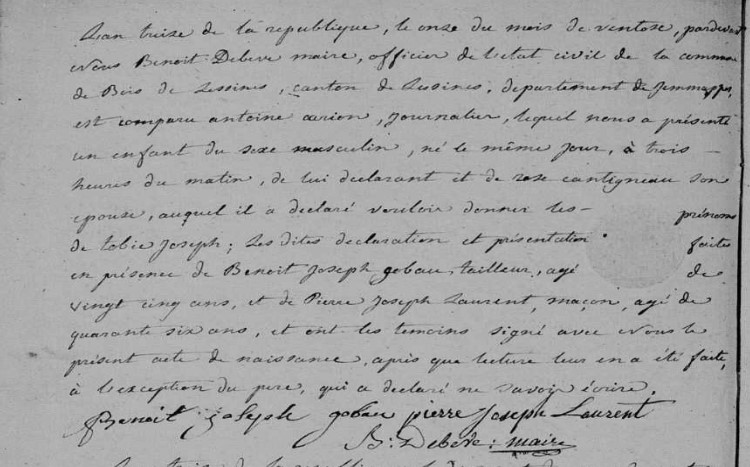 L'an treize de la république, le onze du mois de ventose, pardevant
Nous Benoit Debeve maire, officier de l'etat civil de la commune
de Bois de Lessines, canton de Lessines, departement de Jemmappes,
est comparu antoine arion, Journalier, lequel nous a présenté
un enfant du sexe masculin, né le même jour, à trois
heures du matin, de lui declarant et de rose cantigneau son
epouse, auquel il a déclaré vouloir donner les prénoms
de tobie Joseph; Les dites declaration et présentation faites
en présence de Benoit Joseph gobau, tailleur, agé de
vingt cinq ans, et de Pierre Joseph Laurent, maçon, agé de
quarante six ans, et ont les temoins signé avec Nous le
présent acte de naissance, après que lecture leur en a été faite,
à l'exception du pere, qui a déclaré ne savoir écrire.
Benoit joseph gobau pierre Joseph Laurent
B: Debeve: maire